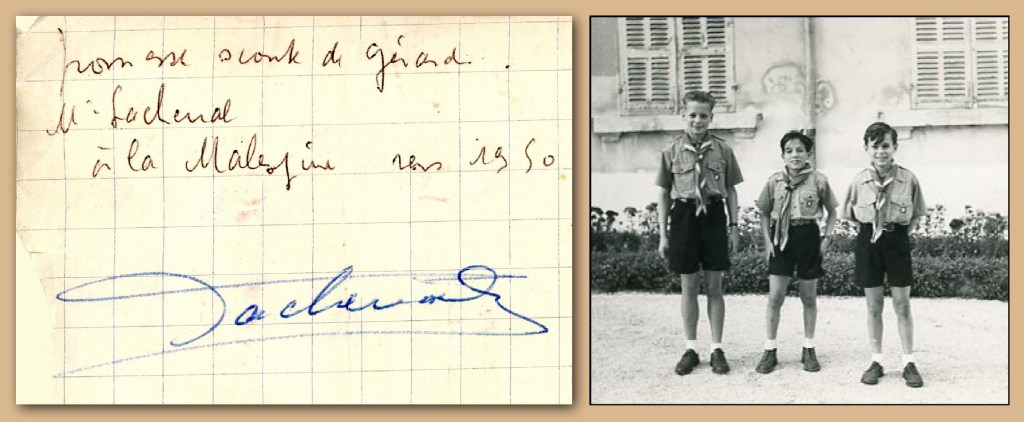 promesse scoute de Gérard.
Mr Lachenal
à la Malespine vers 1950
Lachenal